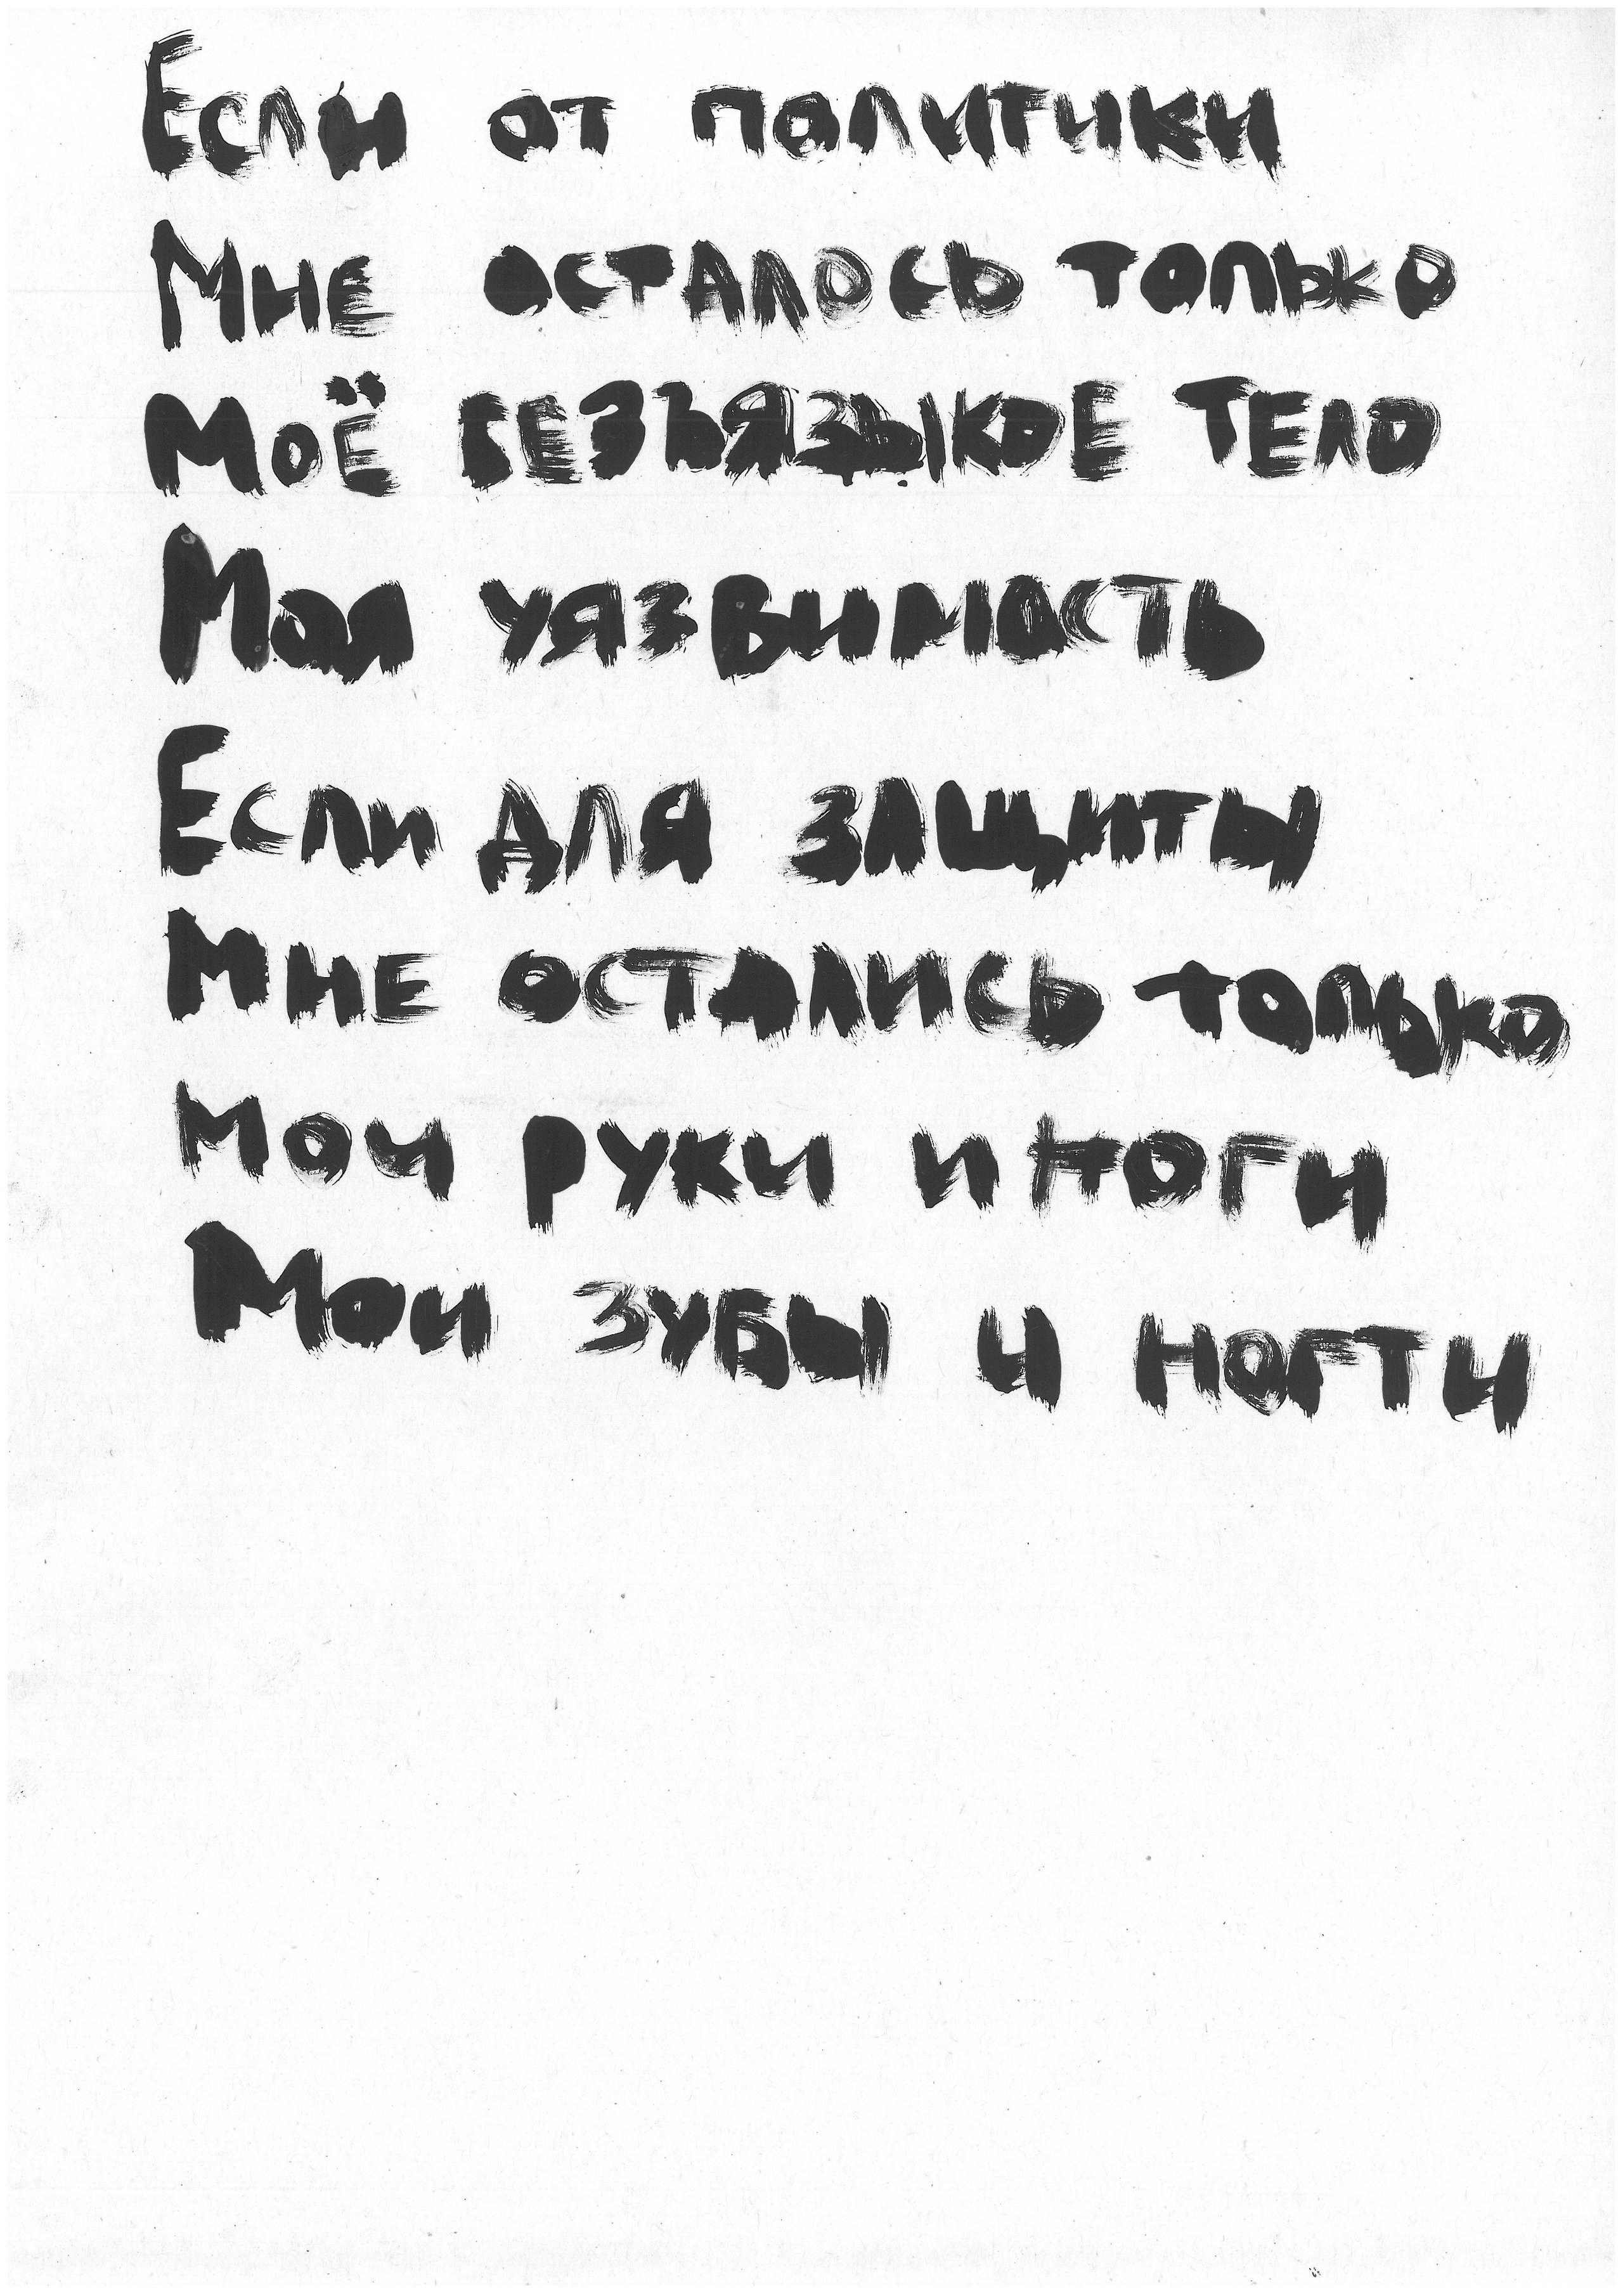 Если от политики
Мне осталось только
Моё безъязыкое тело
Моя уязвимость
Если для защиты
Мне остались только
Мои руки и ноги
Мои зубы и ногти